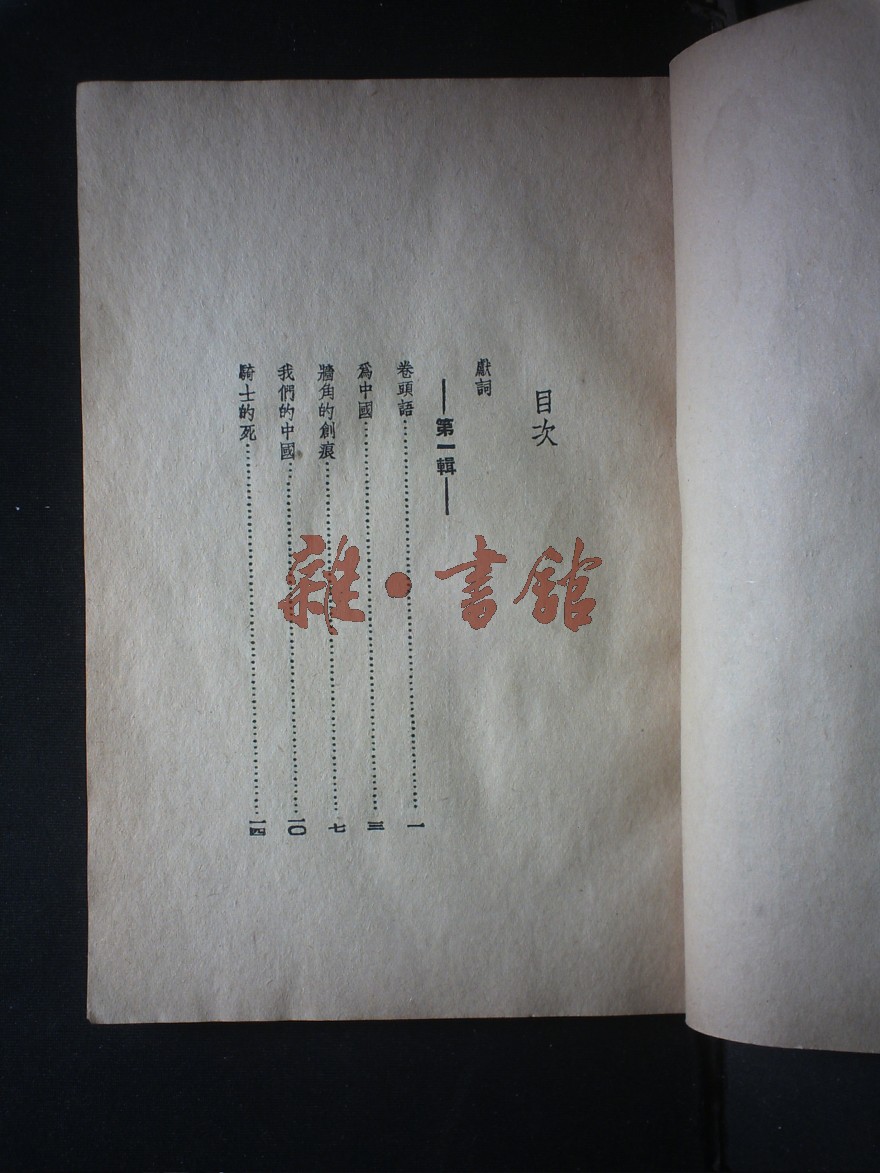 目次
獻詞
——第一輯——
卷頭語…………一
爲中國…………三
牆角的創痕…………七
我們的中國…………一〇
騎士的死…………一四
雜·書館